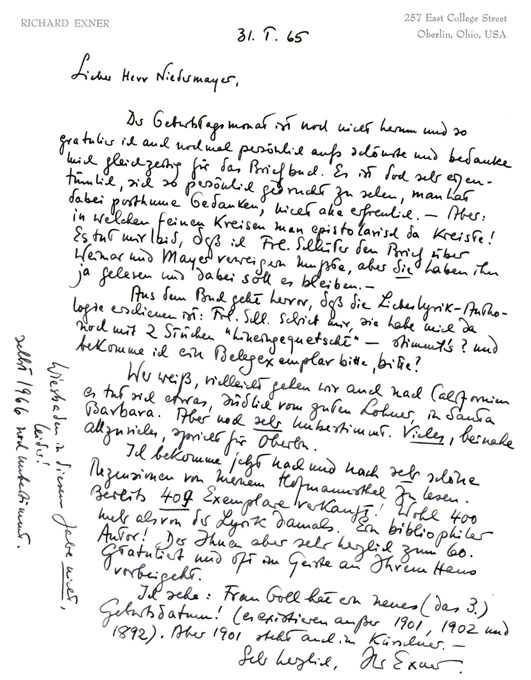 RICHARD EXNER
257 East College Street
Oberlin, Ohio, USA
31. I. 65
Lieber Herr Niedermayer,
Der Geburtstagsmonat ist noch nicht herum und so
gratulier ich auch nochmal persönlich aufs schönste und bedanke
mich gleichzeitig für das Briefbuch. Es ist doch sehr eigen-
tümlich, sich so persönlich gedruckt zu sehen, man hat
dabei posthume Gedanken, nicht alle erfreulich. — Aber:
in welchen feinen Kreisen man epistolarisch da kreiste!
Es tut mir leid, daß ich Frl. Schlüter den Brief über
Werner und Mayer verweigern mußte, aber sie haben ihn
ja gelesen und dabei soll es bleiben. —
Aus dem Buch geht hervor, daß die Liebeslyrik-Antho-
logie erschienen ist: Frl. Schl. schrieb mir, sie habe mich da
noch mit 2 Stücken "hineingequetscht" — stimmt's? und
bekomme ich ein Belegexemplar bitte, bitte?
Wer weiß, vielleicht gehen wir auch nach Californien
es tut sich etwas, südlich vom guten Lohner, in Santa
Barbara. Aber noch sehr unbestimmt. Vieles, beinahe
allzuvieles, spricht für Oberlin.
Ich bekomme jetzt nach und nach sehr schöne
Rezensionen von meinem Hofmannsthal zu lesen.
Bereits 409 Exemplare verkauft! Wohl 400
mehr als von der Lyrik damals. Ein bibliophiler
Autor! Der Ihnen aber sehr herzlich zum 60.
gratuliert und oft im Geiste an Ihrem Haus
vorbeigeht.
Ich sehe: Frau Goll hat ein neues (das 3.)
Geburtsdatum! (es existieren außer 1901, 1902 und
1892). Aber 1901 steht auch im Kürschner. —
Sehr herzlich, Ihr Exner.
Wiesbaden in diesem Jahre nicht,
leider!
selbst 1966 noch unbestimmt.